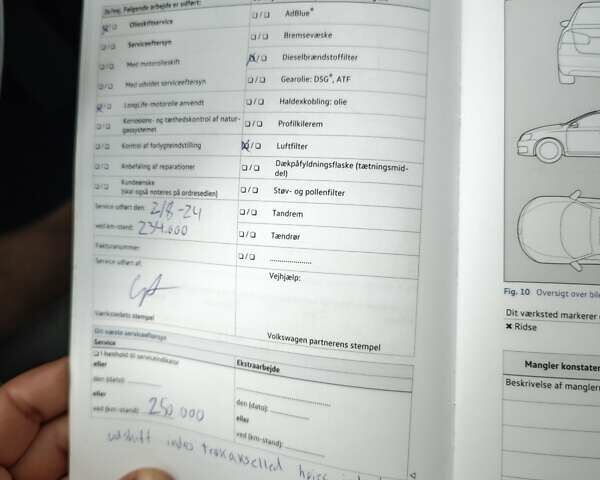 Ja/nej. Følgende arbejde er udført:
Olieskiftservice
Serviceeftersyn
Med motorolieskift
Med udvidet serviceeftersyn
LongLife-motorolie anvendt
Korrosions- og tæthedskontrol af natur-
gassystemet
Kontrol af forlygteindstilling
Anbefaling af reparationer
Kundeønske
(skal også noteres på ordresedlen)
Service udført den: 2/8-24
ved km-stand: 234.000
Fakturanummer:
Service udført af:
Værkstedets stempel
AdBlue®
Bremsevæske
Dieselbrændstoffilter
Gearolie: DSG®, ATF
Haldexkobling: olie
Profilkilerem
Luftfilter
Dækpåfyldningsflaske (tætningsmid-
del)
Støv- og pollenfilter
Tandrem
Tændrør
.....................
Vejhjælp:
Volkswagen partnerens stempel
Dit næste serviceeftersyn
Service
I henhold til serviceindikator
eller
den (dato): ..............
eller
ved (km-stand): 250.000
Ekstraarbejde
den (dato): ..............
eller
ved (km-stand): ..............
udskift
Fig. 10 Oversigt over bile
Dit værksted markerer
✖ Ridse
Mangler konstater
Beskrivelse af manglern